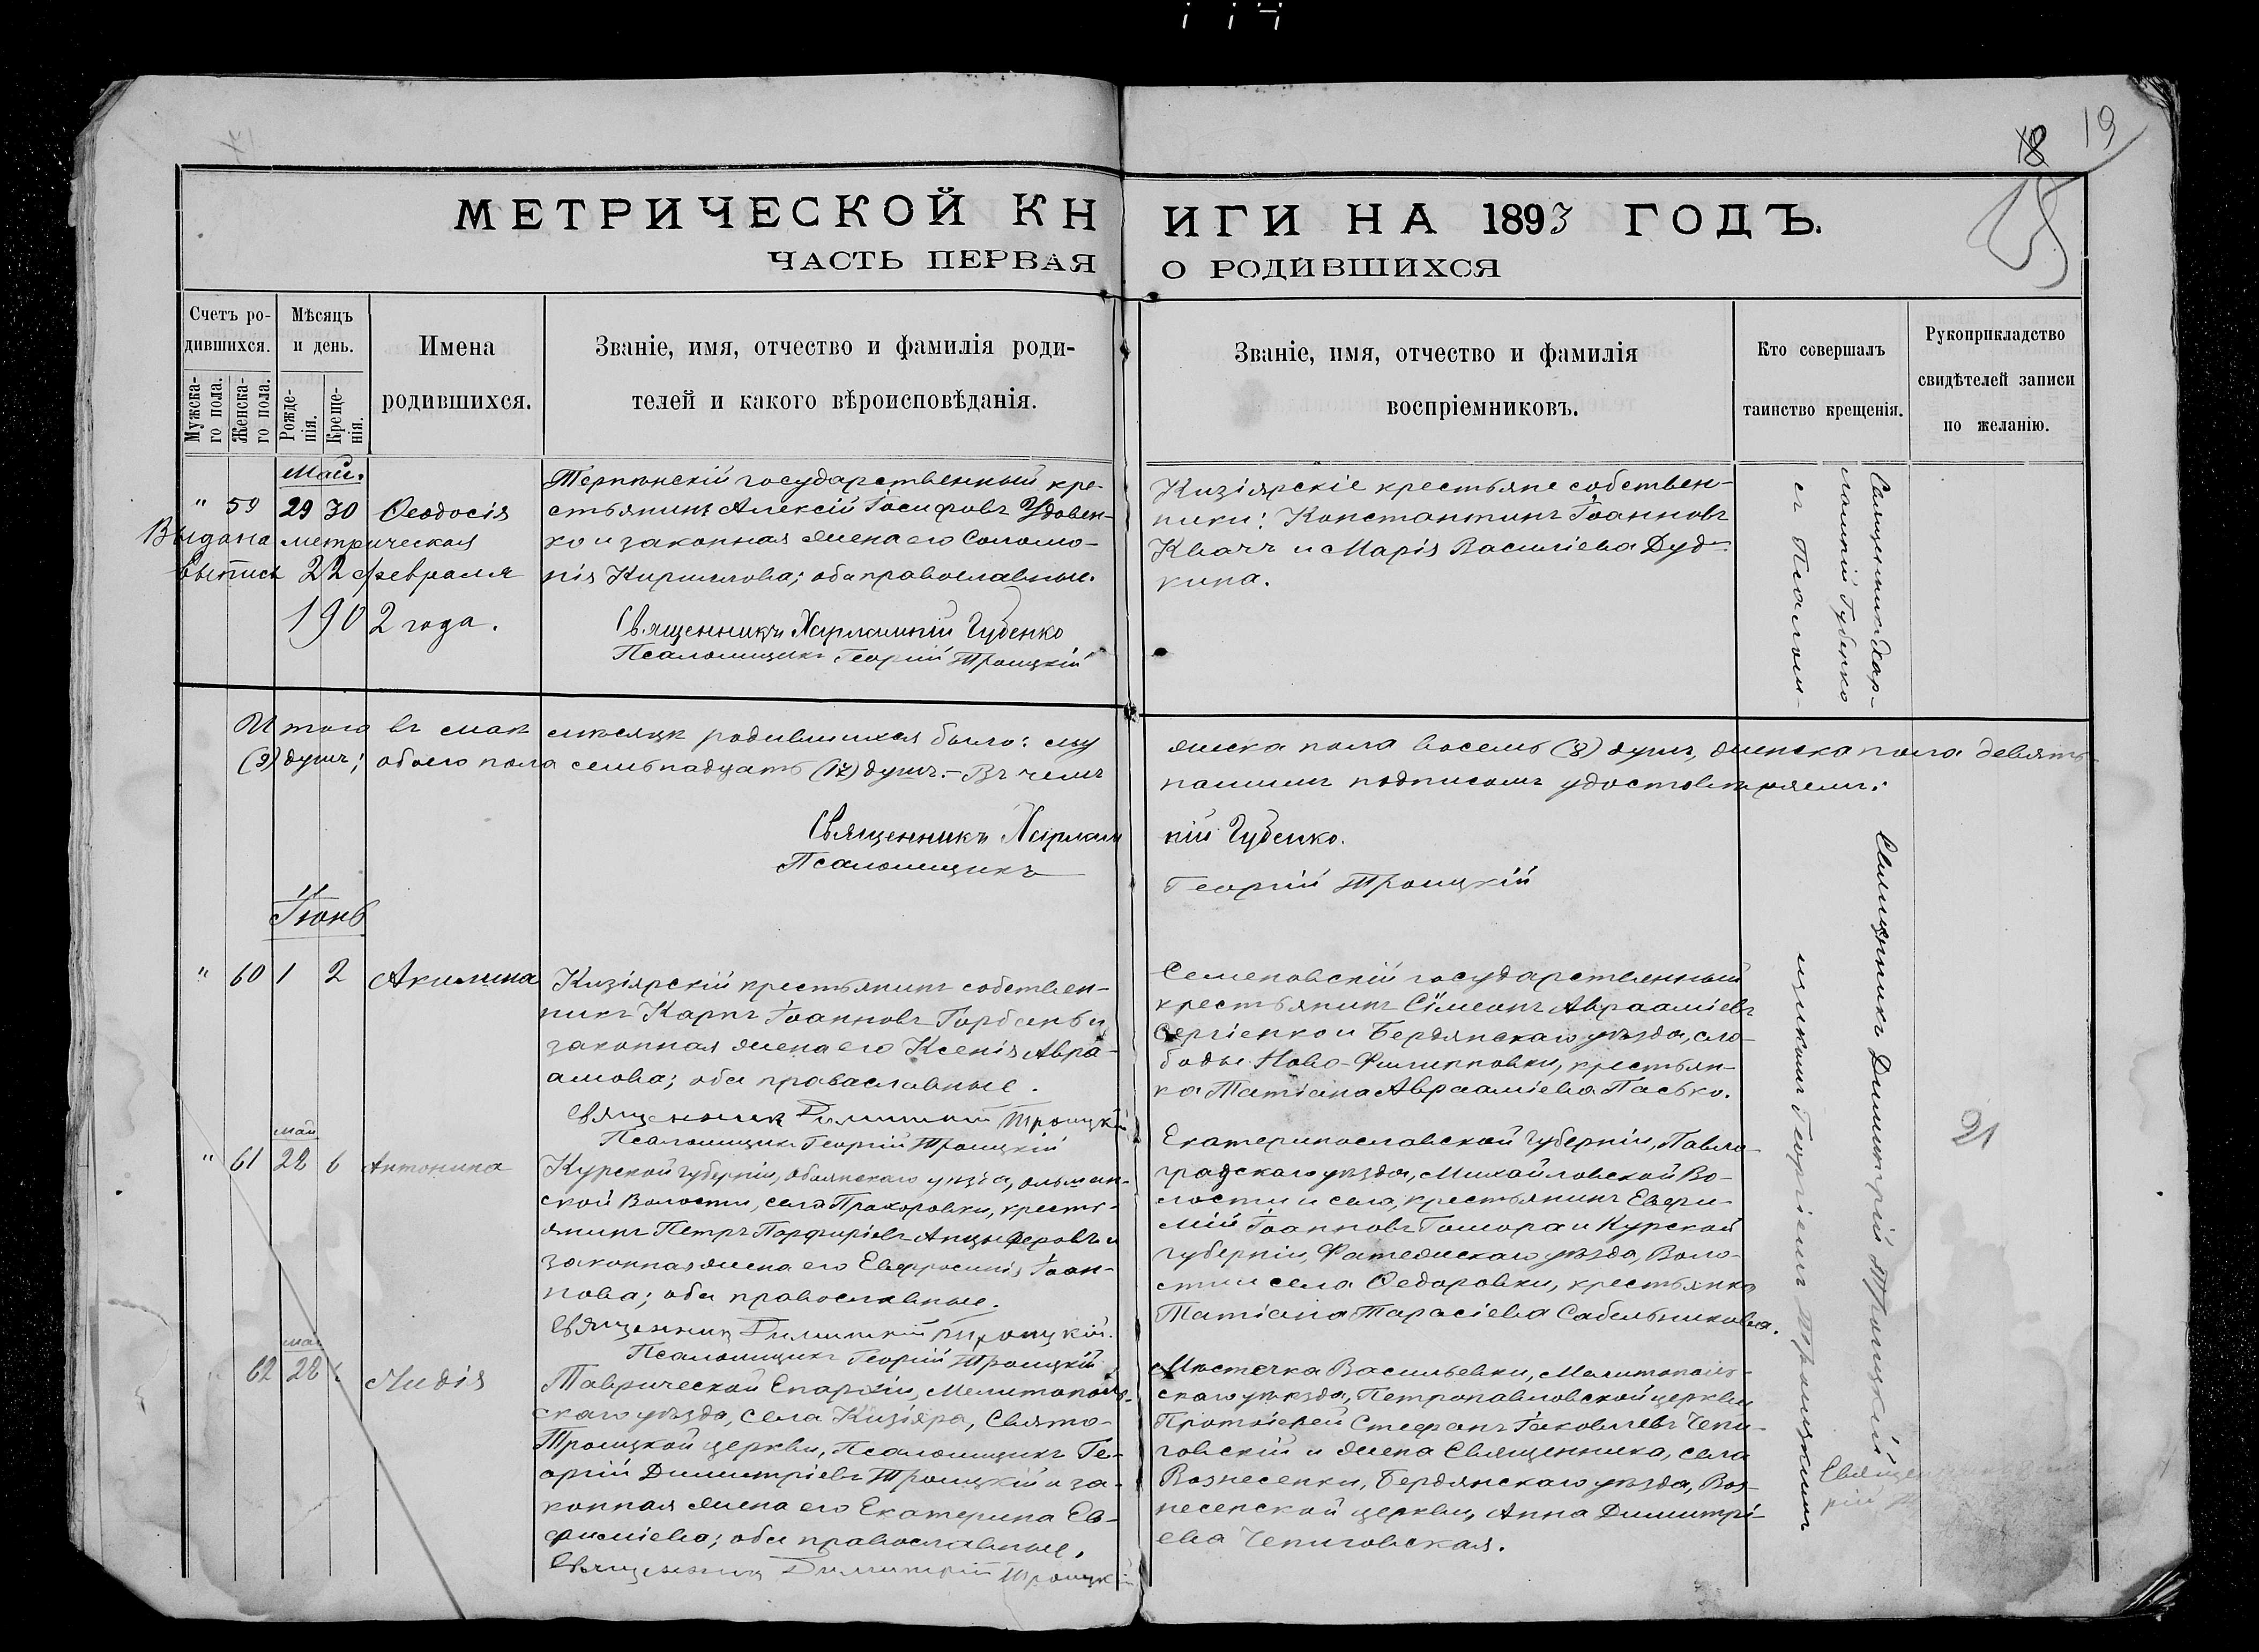 18 19
МЕТРИЧЕСКОЙ КНИГИ НА 1893 ГОДЪ.
ЧАСТЬ ПЕРВАЯ О РОДИВШИХСЯ
Счетъ ро-
дившихся.
Мужска-
го пола.
Женска-
го пола.
Мѣсяцъ
и день.
Рожде-
нія.
Креще-
нія.
Имена
родившихся.
Званіе, имя, отчество и фамилія роди-
телей и какого вѣроисповѣданія.
Званіе, имя, отчество и фамилія
воспріемниковъ.
Кто совершалъ
таинство крещенія.
Рукоприкладство
свидѣтелей записи
по желанію.
Май.
" 59 29 30 Ѳеодосія
Выдана метрическая
выпись 22 февраля
1902 года.
Терпѣнскій государственный кре-
стьянинъ Алексій Іосифовъ Удовен-
ко и законная жена его Соломо-
нія Кириллова; оба православные.
Священникъ Харлампій Губенко
Псаломщикъ Георгій Троицкій
Кизіярскіе крестьяне собствен-
ники: Константинъ Іоанновъ
Квачъ и Марія Васильева Дуд-
кина.
Священникъ Хар-
лампій Губенко
съ Псалом-
Итого въ маѣ мѣсяцѣ родившихся было: му
жеска пола восемь (8) душъ, женска пола девять
(9) душъ; обоего пола семьнадцать (17) душъ. – Въ чемъ
нашимъ подписомъ удостовѣряемъ:
Священникъ Харлам
пій Губенко.
Псаломщикъ
Георгій Троицкій
Іюнь
" 60 1 2 Акилина
Кизіярскій крестьянинъ собствен-
никъ Карпъ Іоанновъ Горбань и
законная жена его Ксенія Авра-
амова; оба православные.
Священник Димитрій Троицкій
Псаломщикъ Георгій Троицкій
Семеновскій государственный
крестьянинъ Сімеонъ Авраамiевъ
Сергіенко и Бердянскаго уѣзда, сло-
боды Ново-Филипповки, крестьян-
ка Татіана Авраамiева Пасько.
Май
" 61 28 6 Антонина
Курской губерніи, Обоянскаго уѣзда, Ольшан-
ской Волости, села Прохоровки, кресть-
янинъ Петръ Порфиріевъ Анцыферовъ и
законная жена его Евфросинія Іоан-
нова; оба православные.
Священник Димитрій Троицкій.
Псаломщикъ Георгій Троицкій
Екатеринославской Губерніи, Павло-
градскаго уѣзда, Михайловской Во-
лости и села, крестьянинъ Евфи-
мій Іоанновъ Гомора и Курской
губерніи, Фатежскаго уѣзда, Воло-
сти и села Ѳедоровки, крестьянка
Татіана Тарасіева Сабельникова.
21
май
62 28 Лидія
Таврической Епархіи, Мелитополь-
скаго уѣзда, села Кизіяра, Свято-
Троицкой церкви, Псаломщикъ Ге-
оргій Димитріевъ Троицкій и за-
конная жена его Екатерина Ев-
фиміева; оба православные.
Священник Димитрій Троицкій
Мѣстечка Васильевки, Мелитополь-
скаго уѣзда, Петропавловской церкви
Протоіерей Стефанъ Іаковлевъ Чепи-
говскій и жена Священника, села
Вознесенки, Бердянскаго уѣзда, Воз-
несенской церкви, Анна Димитрі-
ева Чепиговская.
Священникъ Димитрій Троицкій
щикомъ Георгіемъ Троицкимъ